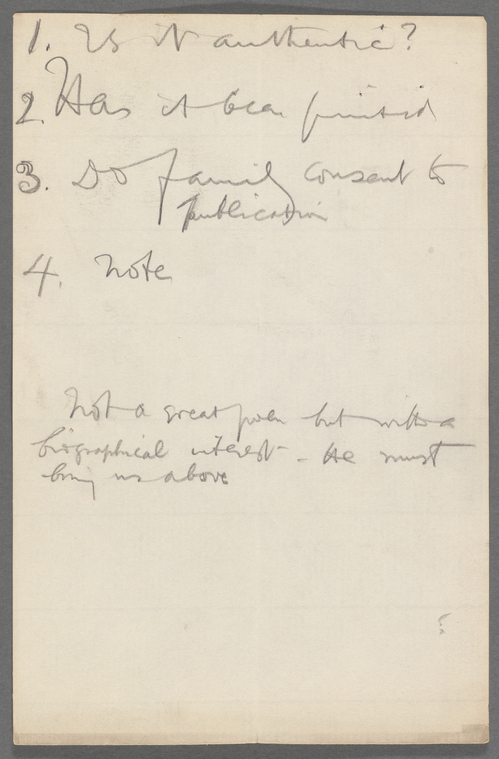 1. Is it authentic?
2. Has it been printed
3. Do family consent to
publication
4. Note
Not a great poem but with a
biographical interest - He must
bring us above